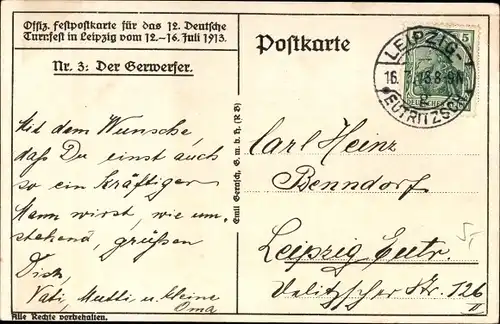 Offiz. Festpostkarte für das 12. Deutsche
Turnfest in Leipzig vom 12.–16. Juli 1913.
Nr. 3: Der Gerwerfer.
Mit dem Wunsche,
daß Du einst auch
so ein kräftiger
Mann wirst, wie um-
stehend, grüßen
Dich
Vati, Mutti u. kleine
Oma
Alle Rechte vorbehalten.
Emil Gerasch, G. m. b. H. (R B)
Postkarte
LEIPZIG-
16. 7. 13. 8-9N
EUTRITZSCH
5
Carl Heinz
Benndorf
Leipzig Eutr.
Delitzscher Str. 126
II
5,-